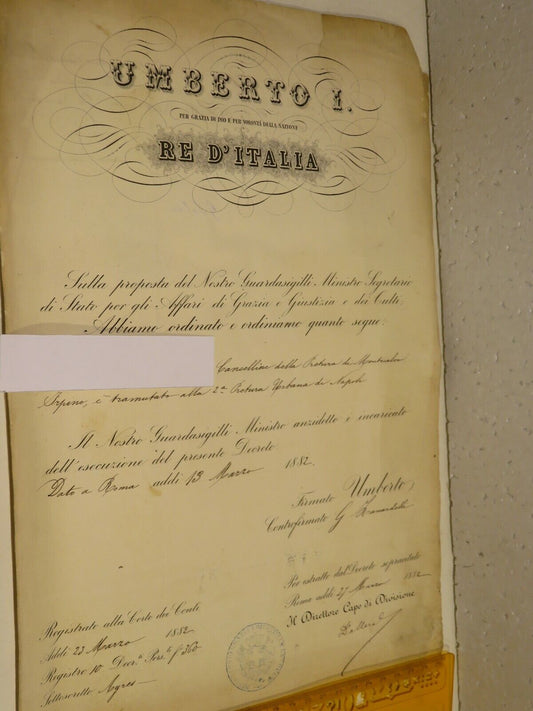 UMBERTO I.
PER GRAZIA DI DIO E PER VOLONTÀ DELLA NAZIONE
RE D'ITALIA
Sulla proposta del Nostro Guardasigilli Ministro Segretario
di Stato per gli Affari di Grazia e Giustizia e dei Culti;
Abbiamo ordinato e ordiniamo quanto segue:
Cancelliere della Pretura di
Irpino, è tramutato alla 2ª Pretura Urbana di Napoli
Il Nostro Guardasigilli Ministro anzidetto è incaricato
dell'esecuzione del presente Decreto
Dato a Roma addì 13 Marzo 1882
Firmato Umberto
Controfirmato G Zanardelli
Per estratto dal Decreto sopracitato
Roma addì 27 Marzo 1882
Il Direttore Capo di Divisione
Registrato alla Corte dei Conti
Addì 23 Marzo 1882
Registro 10 Decr.ⁱ Pers.ⁱ f 360
Sottoscritto Ayres